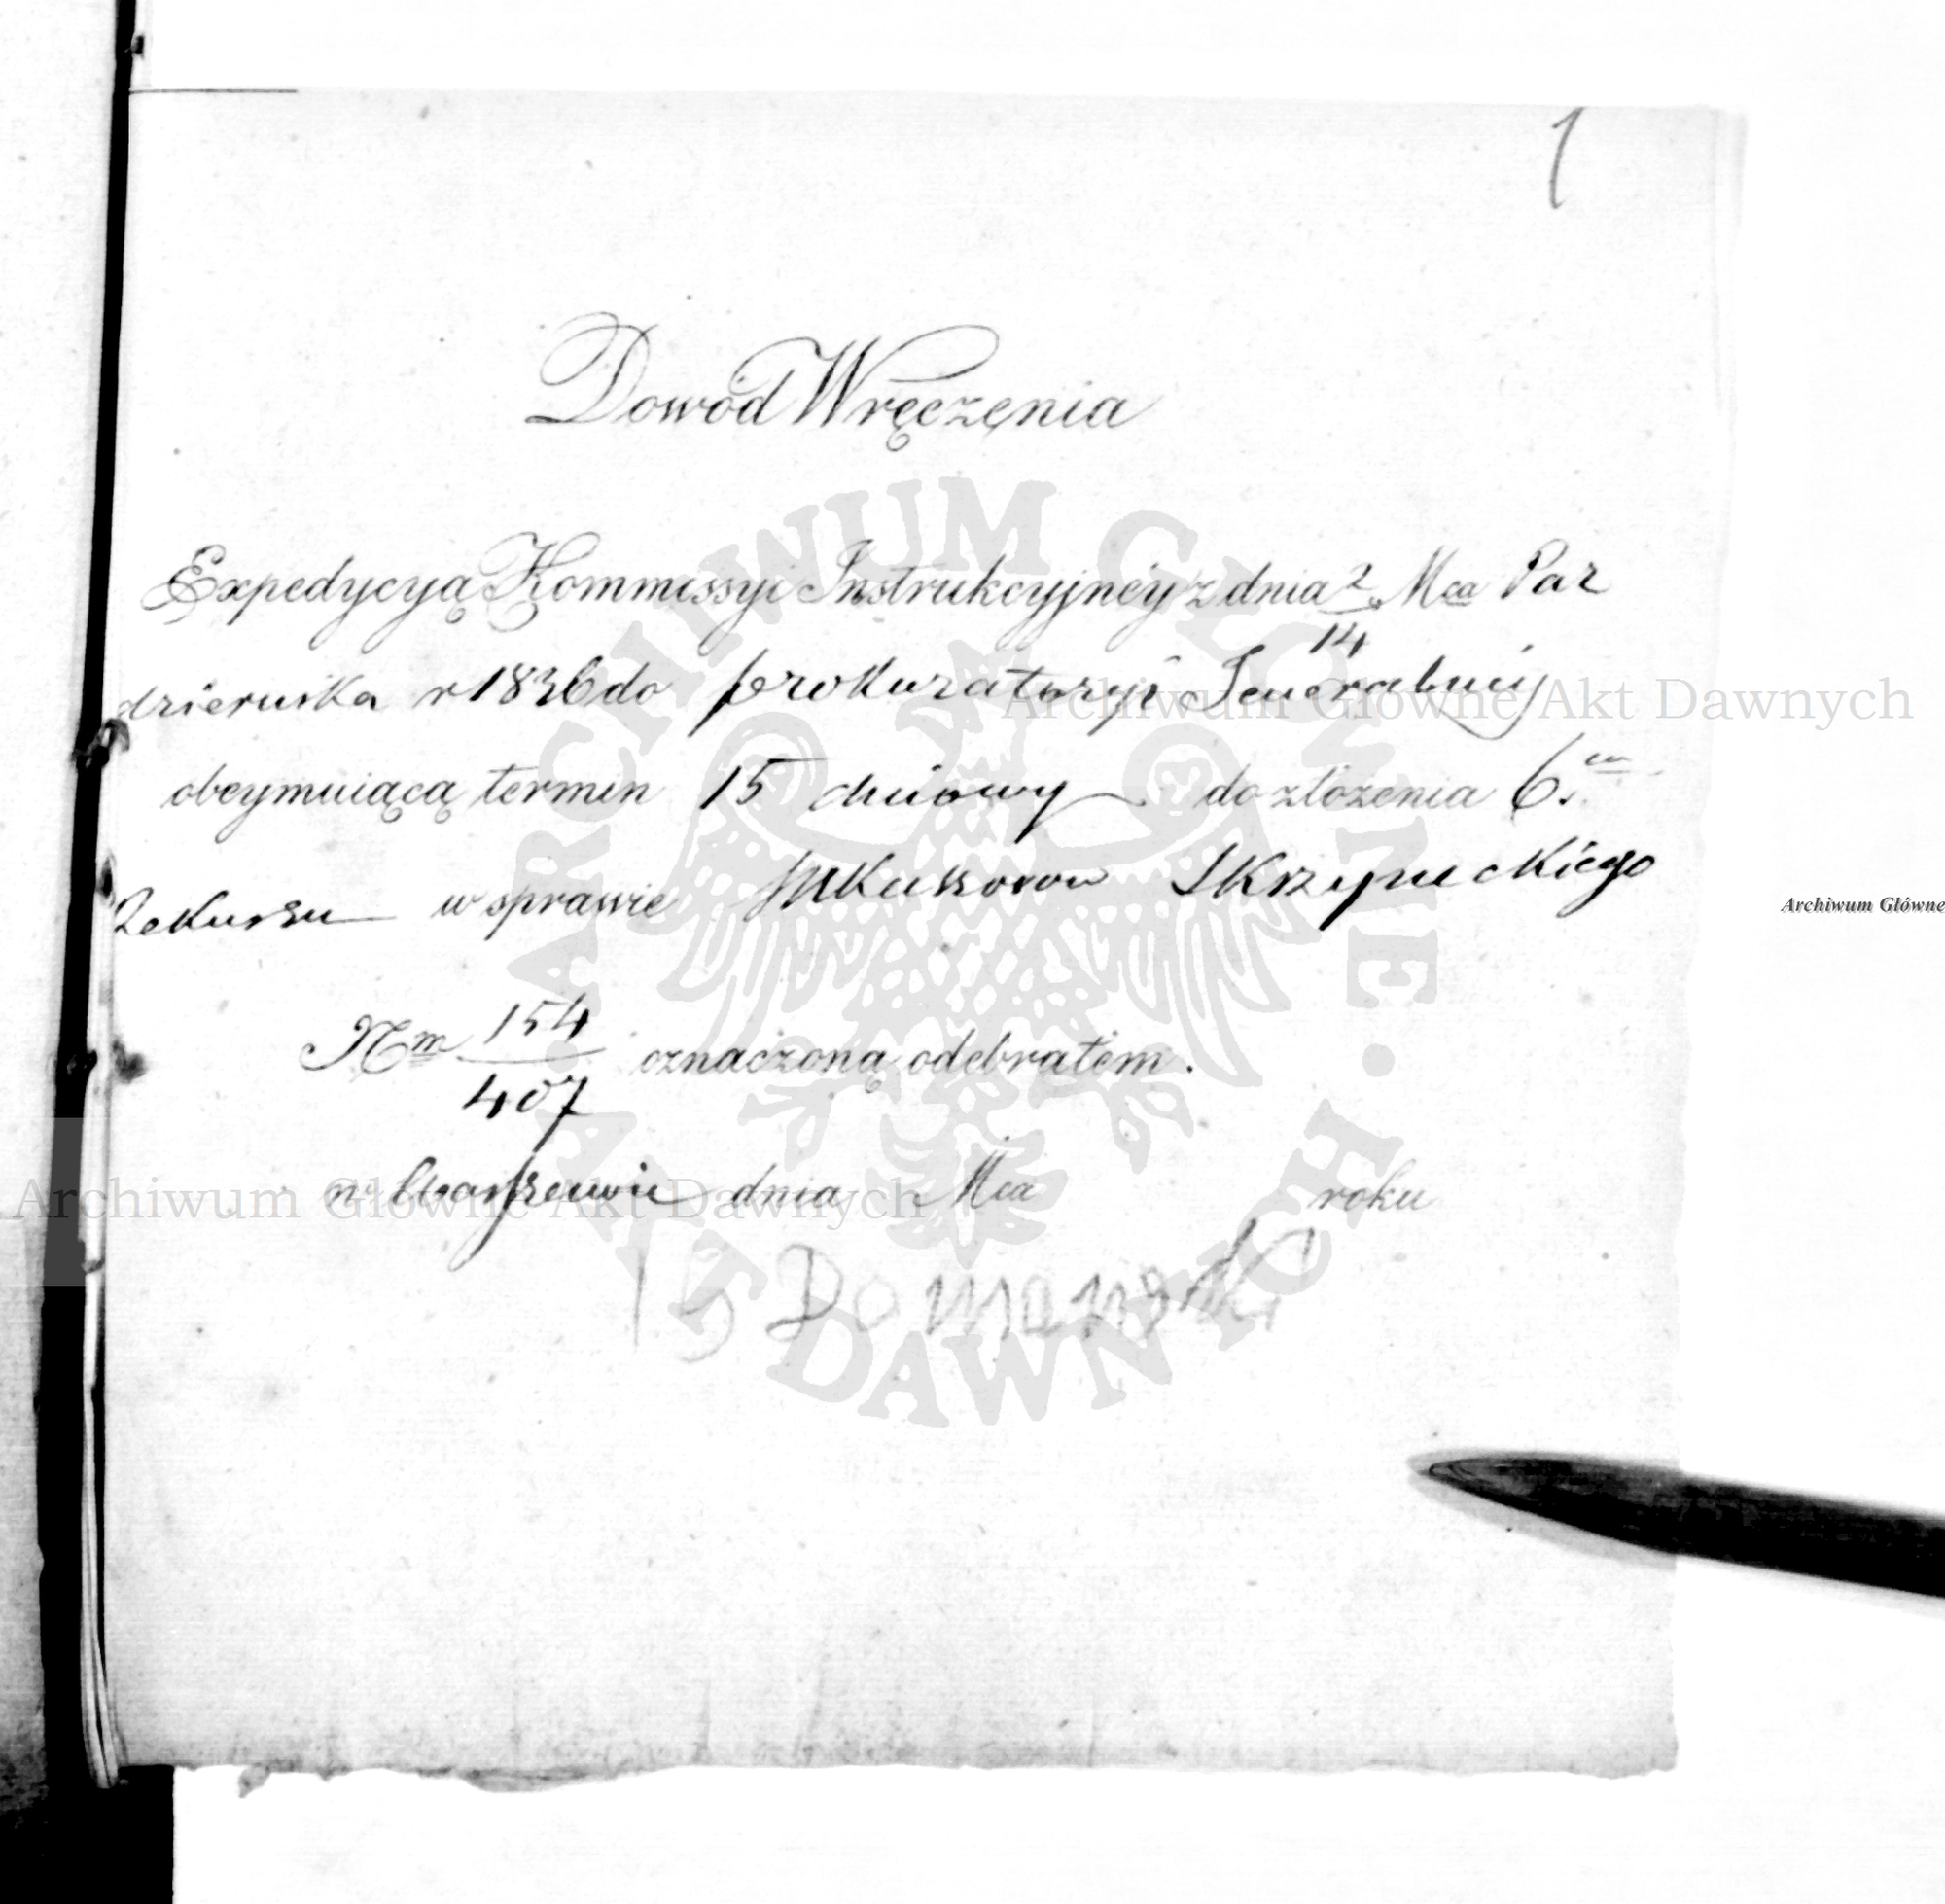 1
Dowód Wręczenia
Expedycyą Kommissyi Instrukcyjnéy z dnia 2/14 Mca Paz
dziernika r 1836 do prokuratoryi Jeneralnéj
obeymuiącą termin 15 dniowy do złożenia
Rekursu w sprawie Sukcessorow Skrzyneckiego
Nrm 154/407 oznaczoną odebrałem.
w Warszawie dnia Mca roku
Domański
ARCHIWUM GŁÓWNE · AKT DAWNYCH
Archiwum Główne Akt Dawnych
Archiwum Główne Akt Dawnych
Archiwum Główne